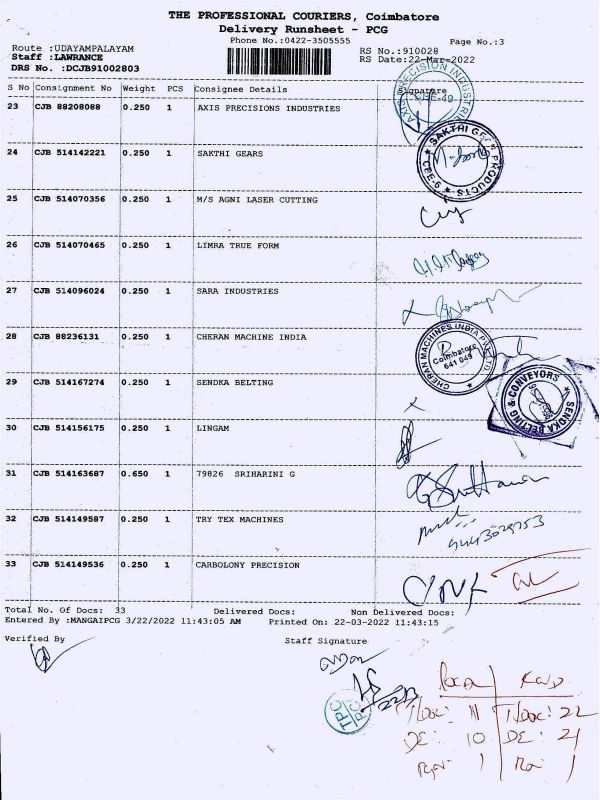 THE PROFESSIONAL COURIERS, Coimbatore
Delivery Runsheet - PCG
Phone No.:0422-3505555
Page No.:3
Route :UDAYAMPALAYAM
RS No.:910028
Staff :LAWRANCE
RS Date:22-Mar-2022
DRS No. :DCJB91002803
S No Consignment No Weight PCS Consignee Details Signature
23 CJB 88208088 0.250 1 AXIS PRECISIONS INDUSTRIES
24 CJB 514142221 0.250 1 SAKTHI GEARS
SAKTHI GEAR PRODUCTS
25 CJB 514070356 0.250 1 M/S AGNI LASER CUTTING
26 CJB 514070465 0.250 1 LIMRA TRUE FORM
27 CJB 514096024 0.250 1 SARA INDUSTRIES
28 CJB 88236131 0.250 1 CHERAN MACHINE INDIA
CHERAN MACHINES INDIA PVT LTD
Coimbatore
641 049
29 CJB 514167274 0.250 1 SENDKA BELTING
SENDKA BELTING & CONVEYORS
30 CJB 514156175 0.250 1 LINGAM
31 CJB 514163687 0.650 1 79826 SRIHARINI G
32 CJB 514149587 0.250 1 TRY TEX MACHINES
33 CJB 514149536 0.250 1 CARBOLONY PRECISION
Total No. Of Docs: 33 Delivered Docs: Non Delivered Docs:
Entered By :MANGAIPCG 3/22/2022 11:43:05 AM Printed On: 22-03-2022 11:43:15
Verified By Staff Signature
TPC
T/Doc: 11 T/Doc: 22
DE: 10 DE: 21
1 1